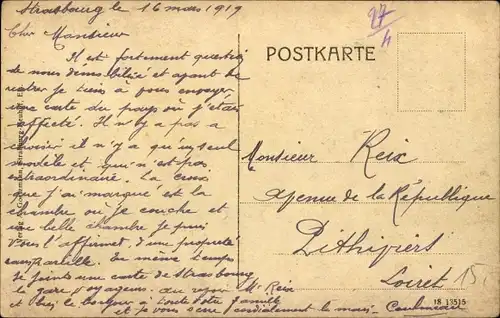 Strasbourg le 16 mars 1919
Cher Monsieur
Il est fortement question
de nous démobiliser et avant de
rentrer je tiens à vous envoyer
une carte du pays où j'étais
affecté. Il n'y a pas à
choisir il n'y a qu'un seul
modèle et qui n'est pas
extraordinaire. La croix
que j'ai marqué est la
chambre où je couche et
une belle chambre je puis
vous l'affirmer, d'une propreté
sans pareille. En même temps
je joints une carte de Strasbourg
la gare voyageurs. au revoir Mr Reix
et bien le bonjour à toute votre famille
et je vous serre cordialement la main.
27
4
POSTKARTE
Monsieur Reix
Avenue de la République
Pithiviers
Loiret
15.
18 13515